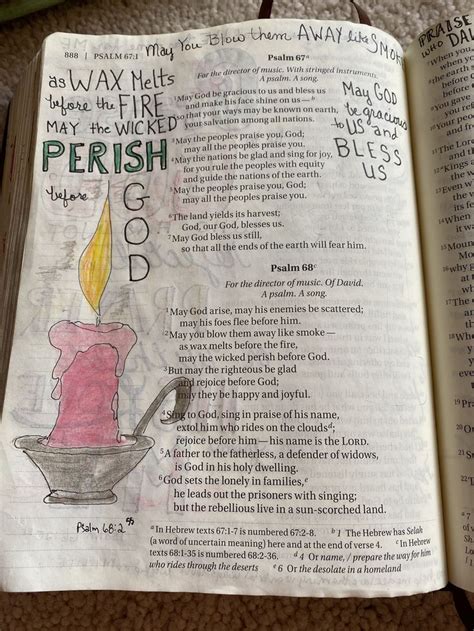 888 | PSALM 67:1
May You Blow them AWAY like SMOKE
as WAX Melts
before the FIRE
MAY the WICKED
PERISH
before
GOD
Psalm 68:2
May GOD
be gracious
to US and
BLESS
US
Psalm 67ᵃ
For the director of music. With stringed instruments.
A psalm. A song.
¹May God be gracious to us and bless us
and make his face shine on us—ᵇ
²so that your ways may be known on earth,
your salvation among all nations.
³May the peoples praise you, God;
may all the peoples praise you.
⁴May the nations be glad and sing for joy,
for you rule the peoples with equity
and guide the nations of the earth.
⁵May the peoples praise you, God;
may all the peoples praise you.
⁶The land yields its harvest;
God, our God, blesses us.
⁷May God bless us still,
so that all the ends of the earth will fear him.
Psalm 68ᶜ
For the director of music. Of David.
A psalm. A song.
¹May God arise, may his enemies be scattered;
may his foes flee before him.
²May you blow them away like smoke—
as wax melts before the fire,
may the wicked perish before God.
³But may the righteous be glad
and rejoice before God;
may they be happy and joyful.
⁴Sing to God, sing in praise of his name,
extol him who rides on the cloudsᵈ;
rejoice before him—his name is the LORD.
⁵A father to the fatherless, a defender of widows,
is God in his holy dwelling.
⁶God sets the lonely in families,ᵉ
he leads out the prisoners with singing;
but the rebellious live in a sun-scorched land.
ᵃ In Hebrew texts 67:1-7 is numbered 67:2-8. ᵇ 1 The Hebrew has Selah
(a word of uncertain meaning) here and at the end of verse 4. ᶜ In Hebrew
texts 68:1-35 is numbered 68:2-36. ᵈ 4 Or name, / prepare the way for him
who rides through the deserts ᵉ 6 Or the desolate in a homeland
PRAISE